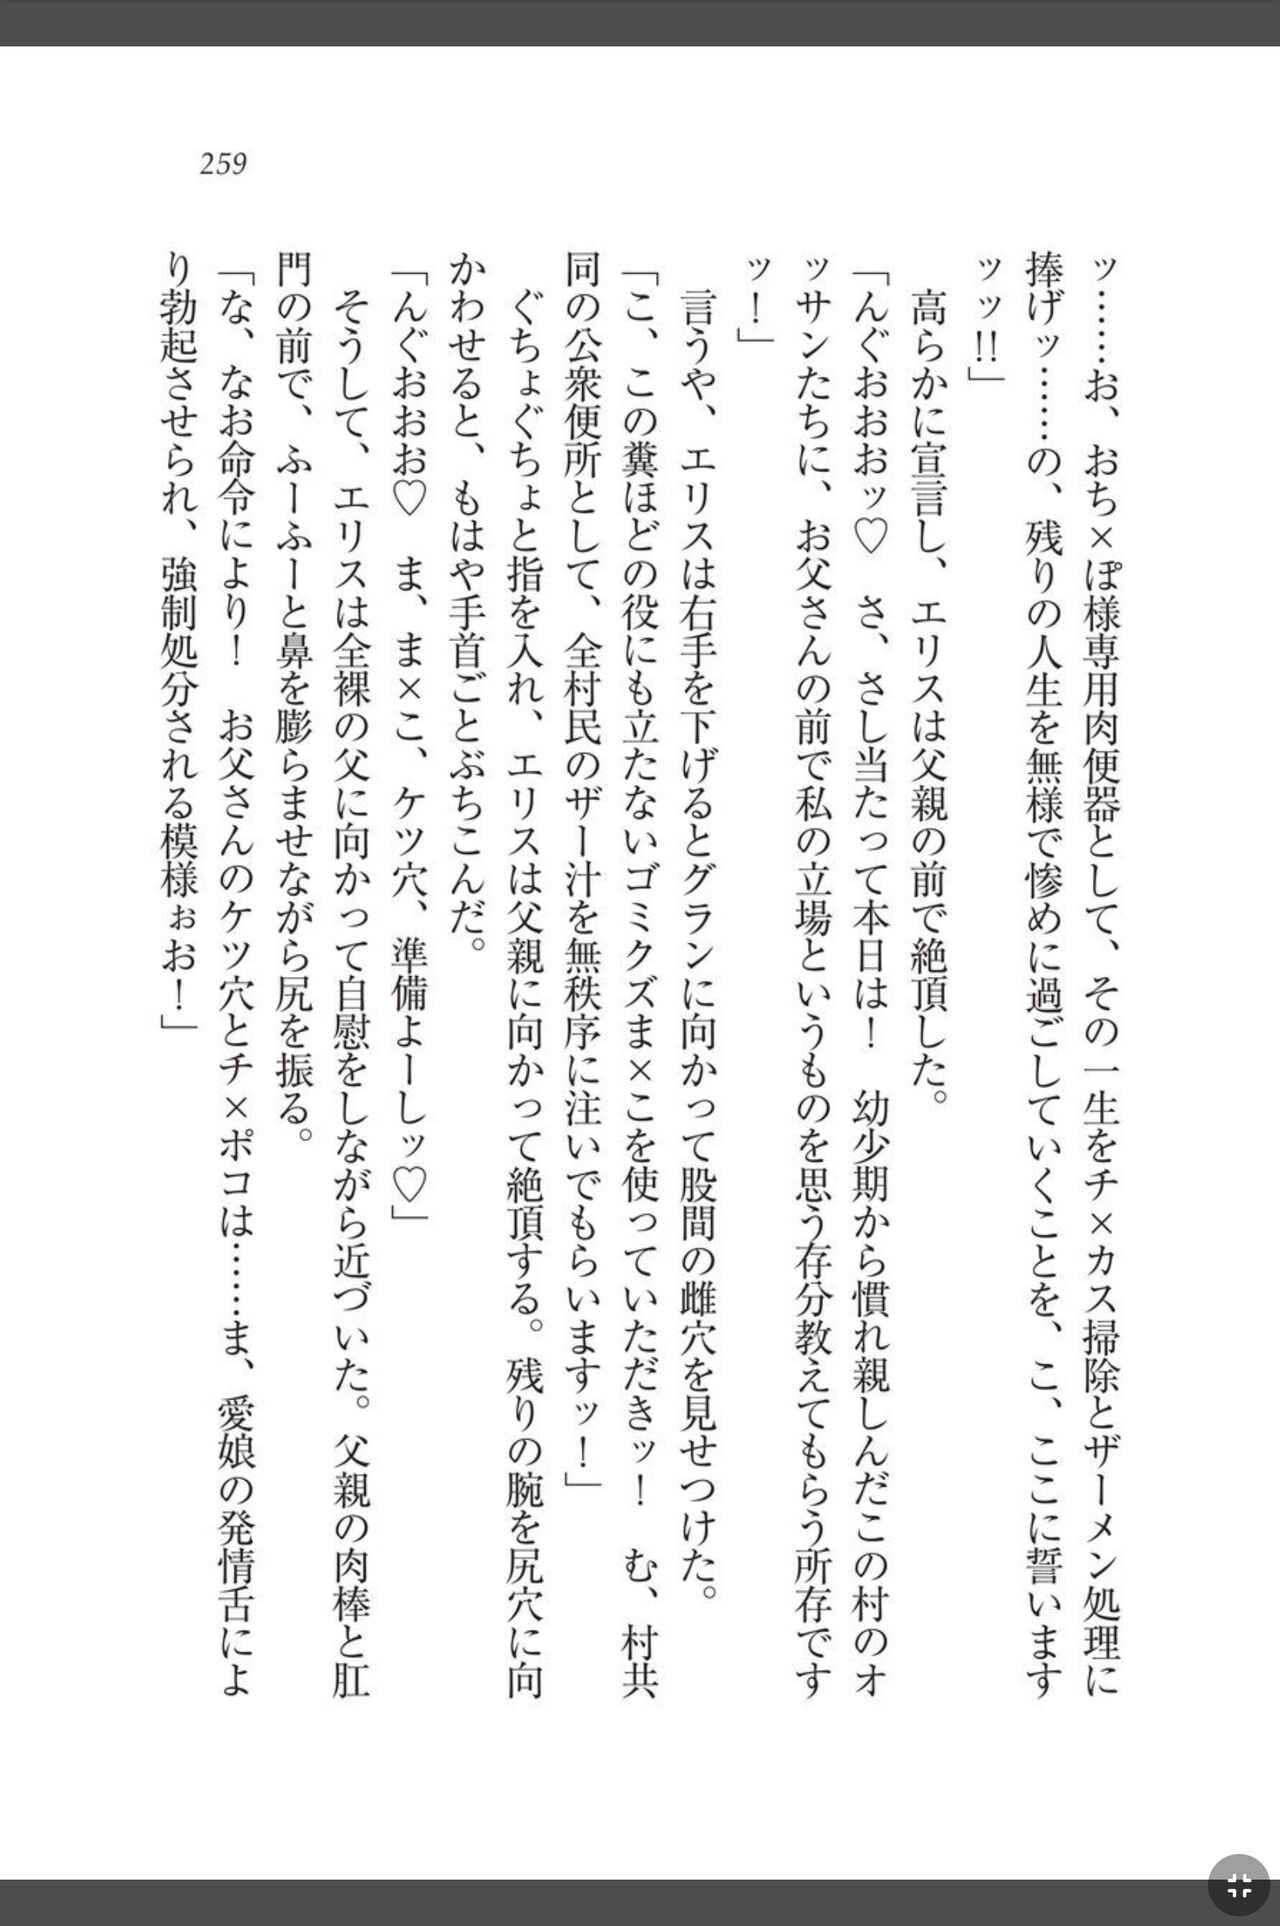 259
ッ……お、おち×ぽ様専用肉便器として、その一生をチ×カス掃除とザーメン処理に
捧げッ……の、残りの人生を無様で惨めに過ごしていくことを、こ、ここに誓います
ッッ!!」
　高らかに宣言し、エリスは父親の前で絶頂した。
「んぐおおおッ♡　さ、さし当たって本日は！　幼少期から慣れ親しんだこの村のオ
ッサンたちに、お父さんの前で私の立場というものを思う存分教えてもらう所存です
ッ！」
　言うや、エリスは右手を下げるとグランに向かって股間の雌穴を見せつけた。
「こ、この糞ほどの役にも立たないゴミクズま×こを使っていただきッ！　む、村共
同の公衆便所として、全村民のザー汁を無秩序に注いでもらいますッ！」
　ぐちょぐちょと指を入れ、エリスは父親に向かって絶頂する。残りの腕を尻穴に向
かわせると、もはや手首ごとぶちこんだ。
「んぐおおお♡　ま、ま×こ、ケツ穴、準備よーしッ♡」
　そうして、エリスは全裸の父に向かって自慰をしながら近づいた。父親の肉棒と肛
門の前で、ふーふーと鼻を膨らませながら尻を振る。
「な、なお命令により！　お父さんのケツ穴とチ×ポコは……ま、愛娘の発情舌によ
り勃起させられ、強制処分される模様ぉお！」